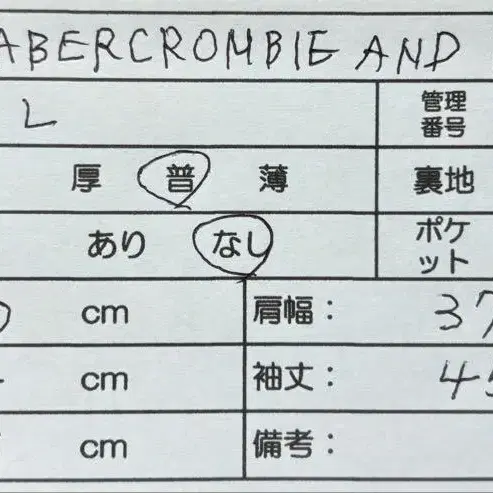 ABERCROMBIE AND
L 管理番号
厚 普 薄 裏地
あり なし ポケット
cm 肩幅： 37
cm 袖丈： 45
cm 備考：